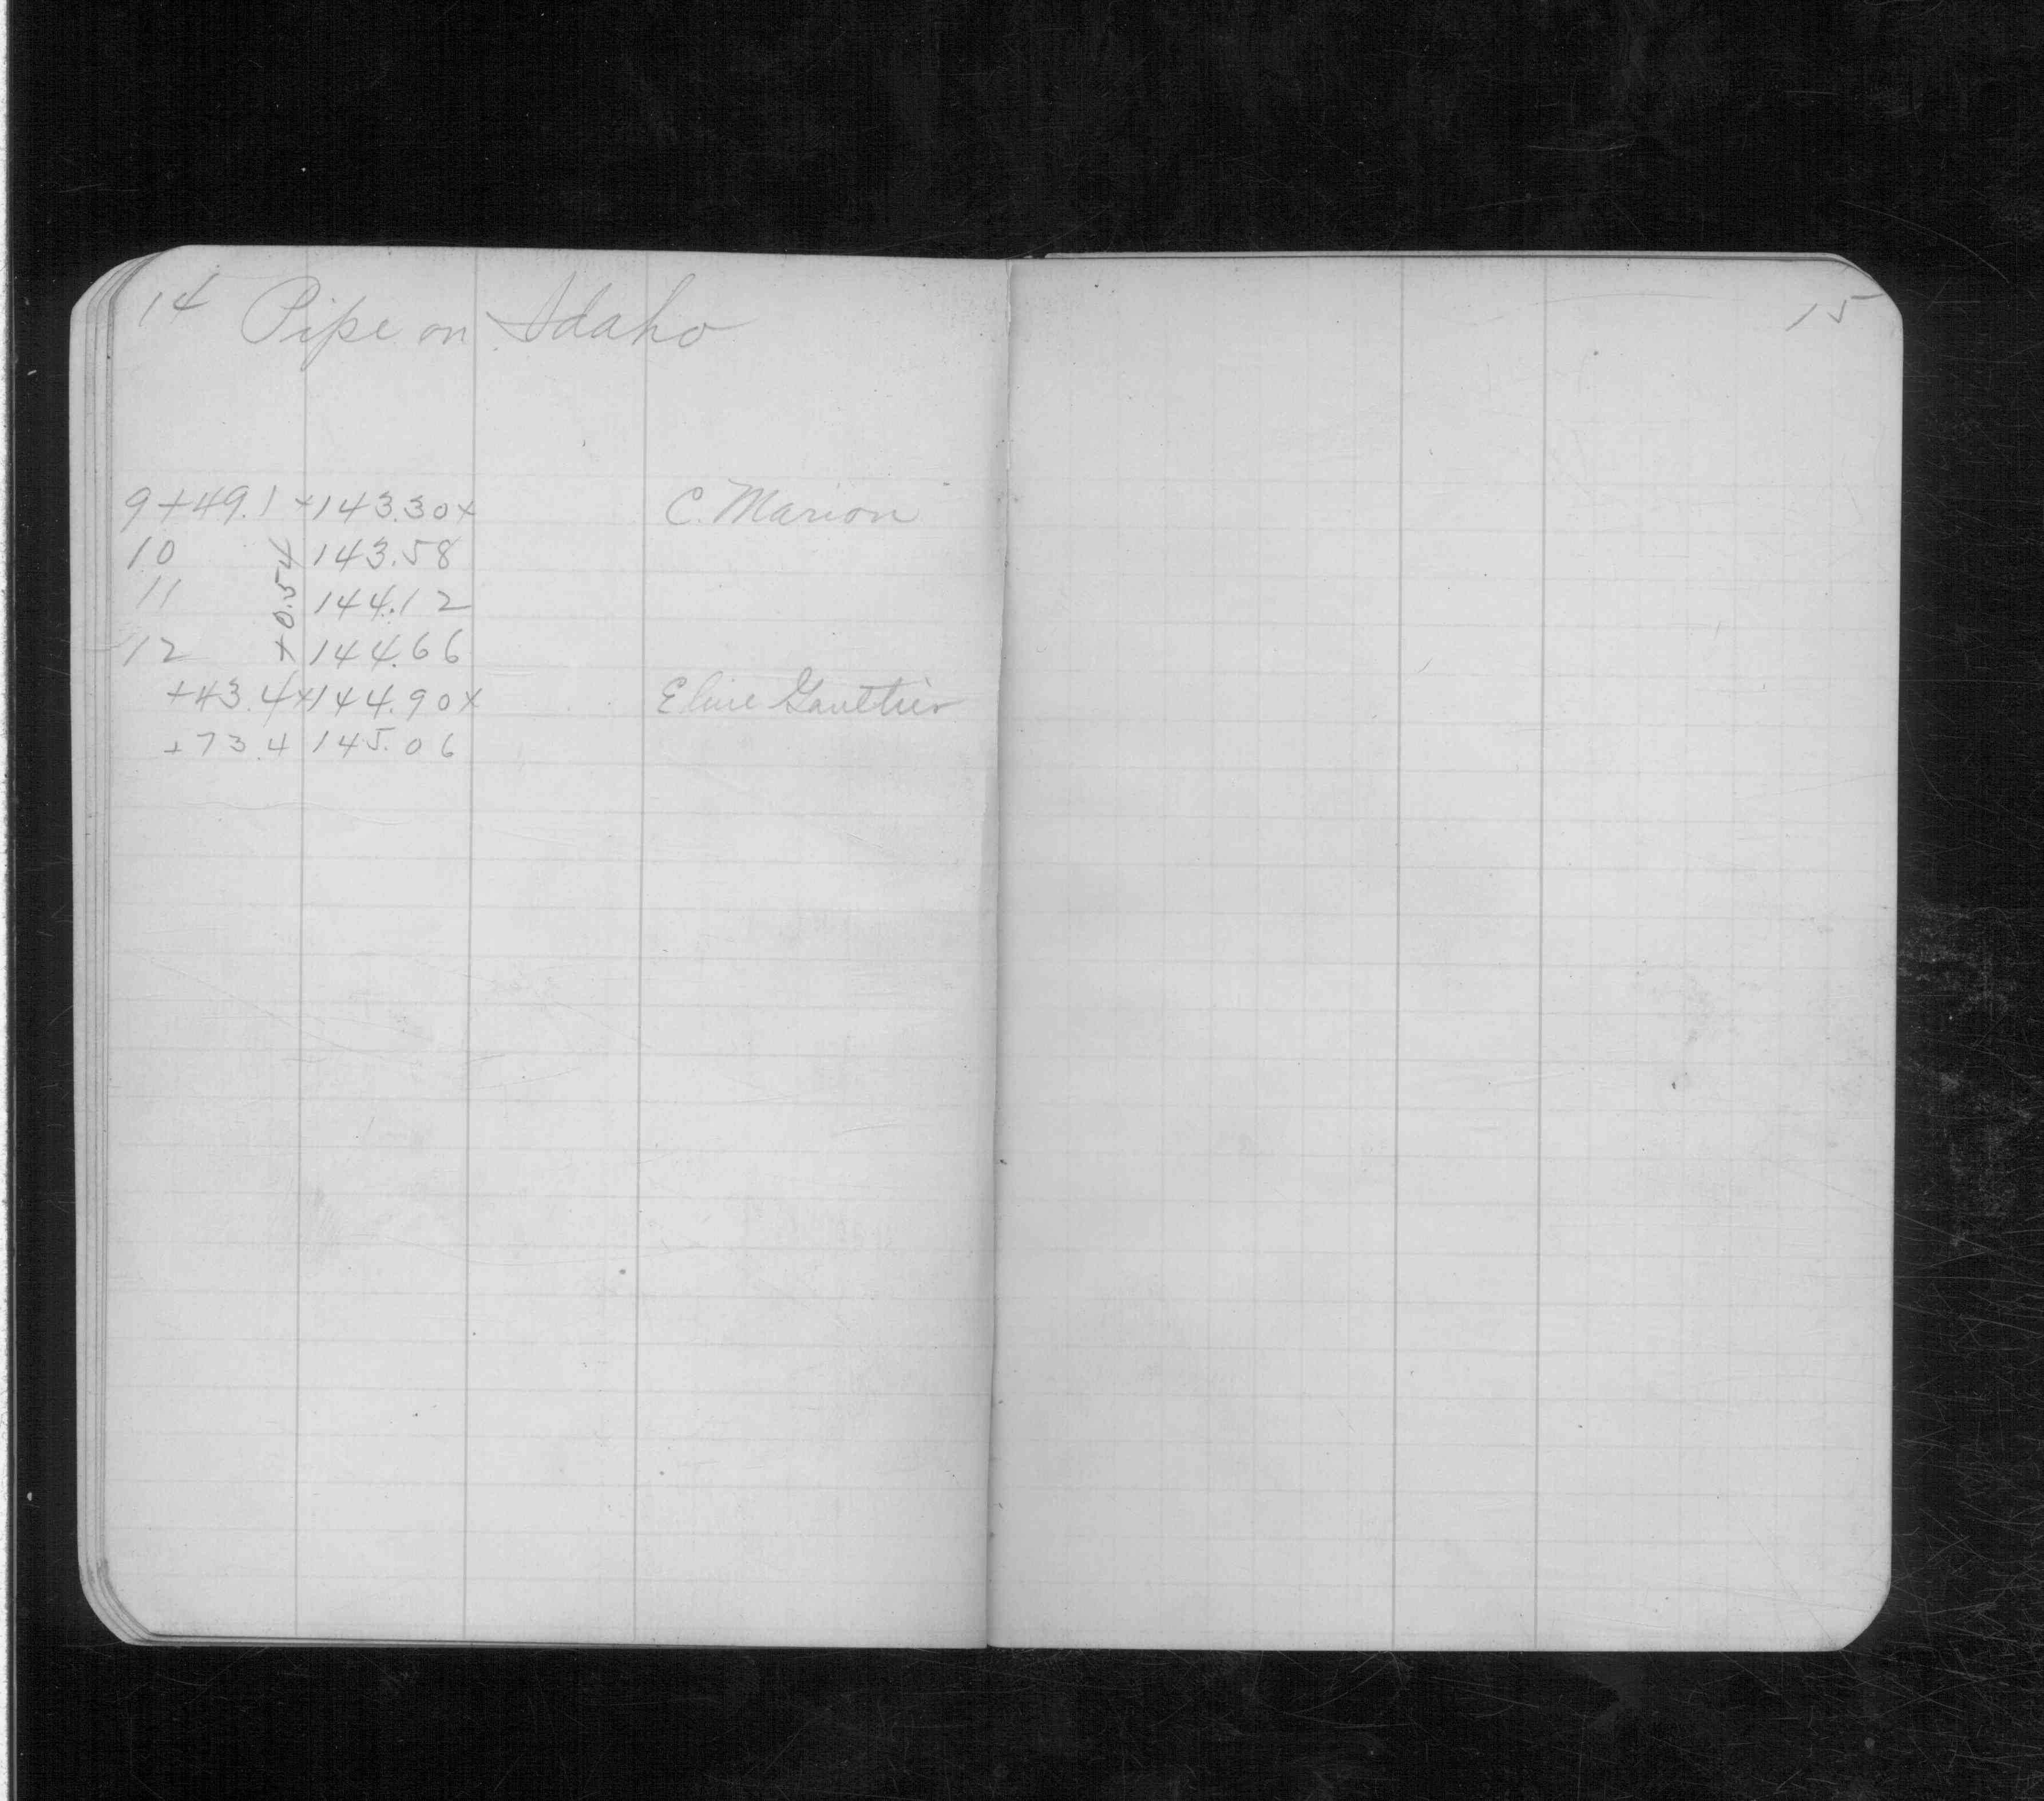 14 Pipe on Idaho
15
9+49.1 x 143.30x C. Marion
10 143.58
11 144.12
12 144.66
+0.54
+43.4 x 144.90x Gaultier
+73.4 145.06